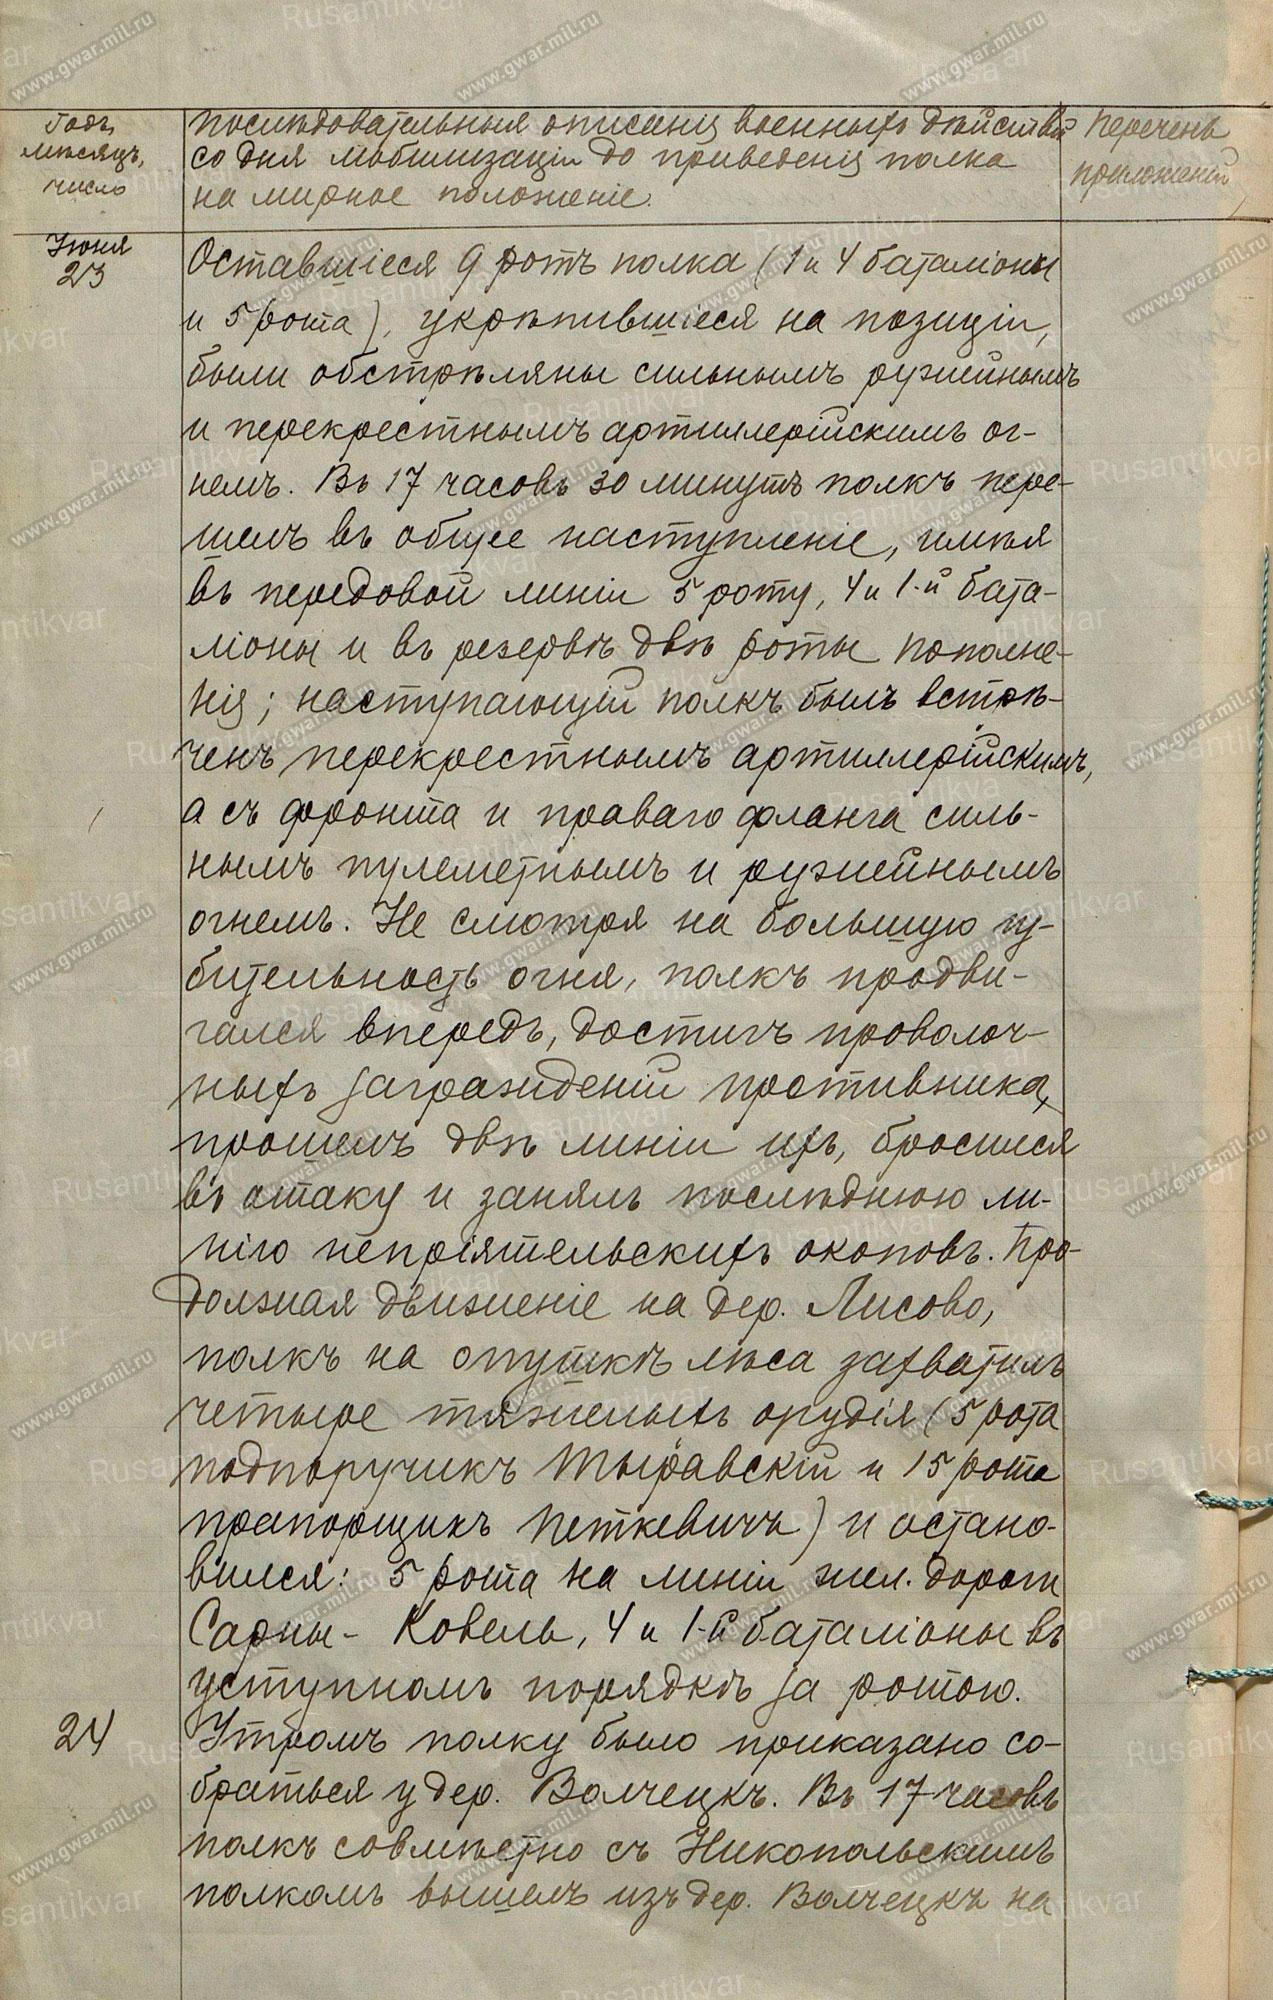 Годъ, мѣсяцъ, число
Послѣдовательныя описанія военныхъ дѣйствій
со дня мобилизаціи до приведенія полка
на мирное положеніе.
Перечень
приложеній
Іюня
23
Оставшіеся 9 ротъ полка (1 и 4 баталіоны
и 5 рота), укрѣпившіеся на позиціи,
были обстрѣляны сильнымъ ружейнымъ
и перекрестнымъ артиллерійскимъ ог-
немъ. Въ 17 часовъ 30 минутъ полкъ пере-
шелъ въ общее наступленіе, имѣя
въ передовой линіи 5 роту, 4 и 1-й бата-
ліоны и въ резервѣ двѣ роты пополне-
нія; наступающій полкъ былъ встрѣ-
ченъ перекрестнымъ артиллерійскимъ,
а съ фронта и праваго фланга силь-
нымъ пулеметнымъ и ружейнымъ
огнемъ. Не смотря на большую гу-
бительность огня, полкъ продви-
гался впередъ, достигъ проволоч-
ныхъ загражденій противника,
прошелъ двѣ линіи ихъ, бросился
въ атаку и занялъ послѣднюю ли-
нію непріятельскихъ окоповъ. Про-
должая движеніе на дер. Лисово,
полкъ на опушкѣ лѣса захватилъ
четыре тяжелыхъ орудія (5 рота
подпоручикъ Тыравскій и 15 рота
прапорщикъ Петкевичъ) и остано-
вился: 5 рота на линіи жел. дороги
Сарны - Ковель, 4 и 1-й баталіоны въ
уступномъ порядкѣ за ротою.
24
Утромъ полку было приказано со-
браться у дер. Волчецкъ. Въ 17 часовъ
полкъ совмѣстно съ Никопольскимъ
полкомъ вышелъ изъ дер. Волчецкъ на
www.gwar.mil.ru
Rusantikvar